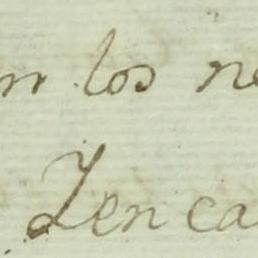 los ne
Zenca